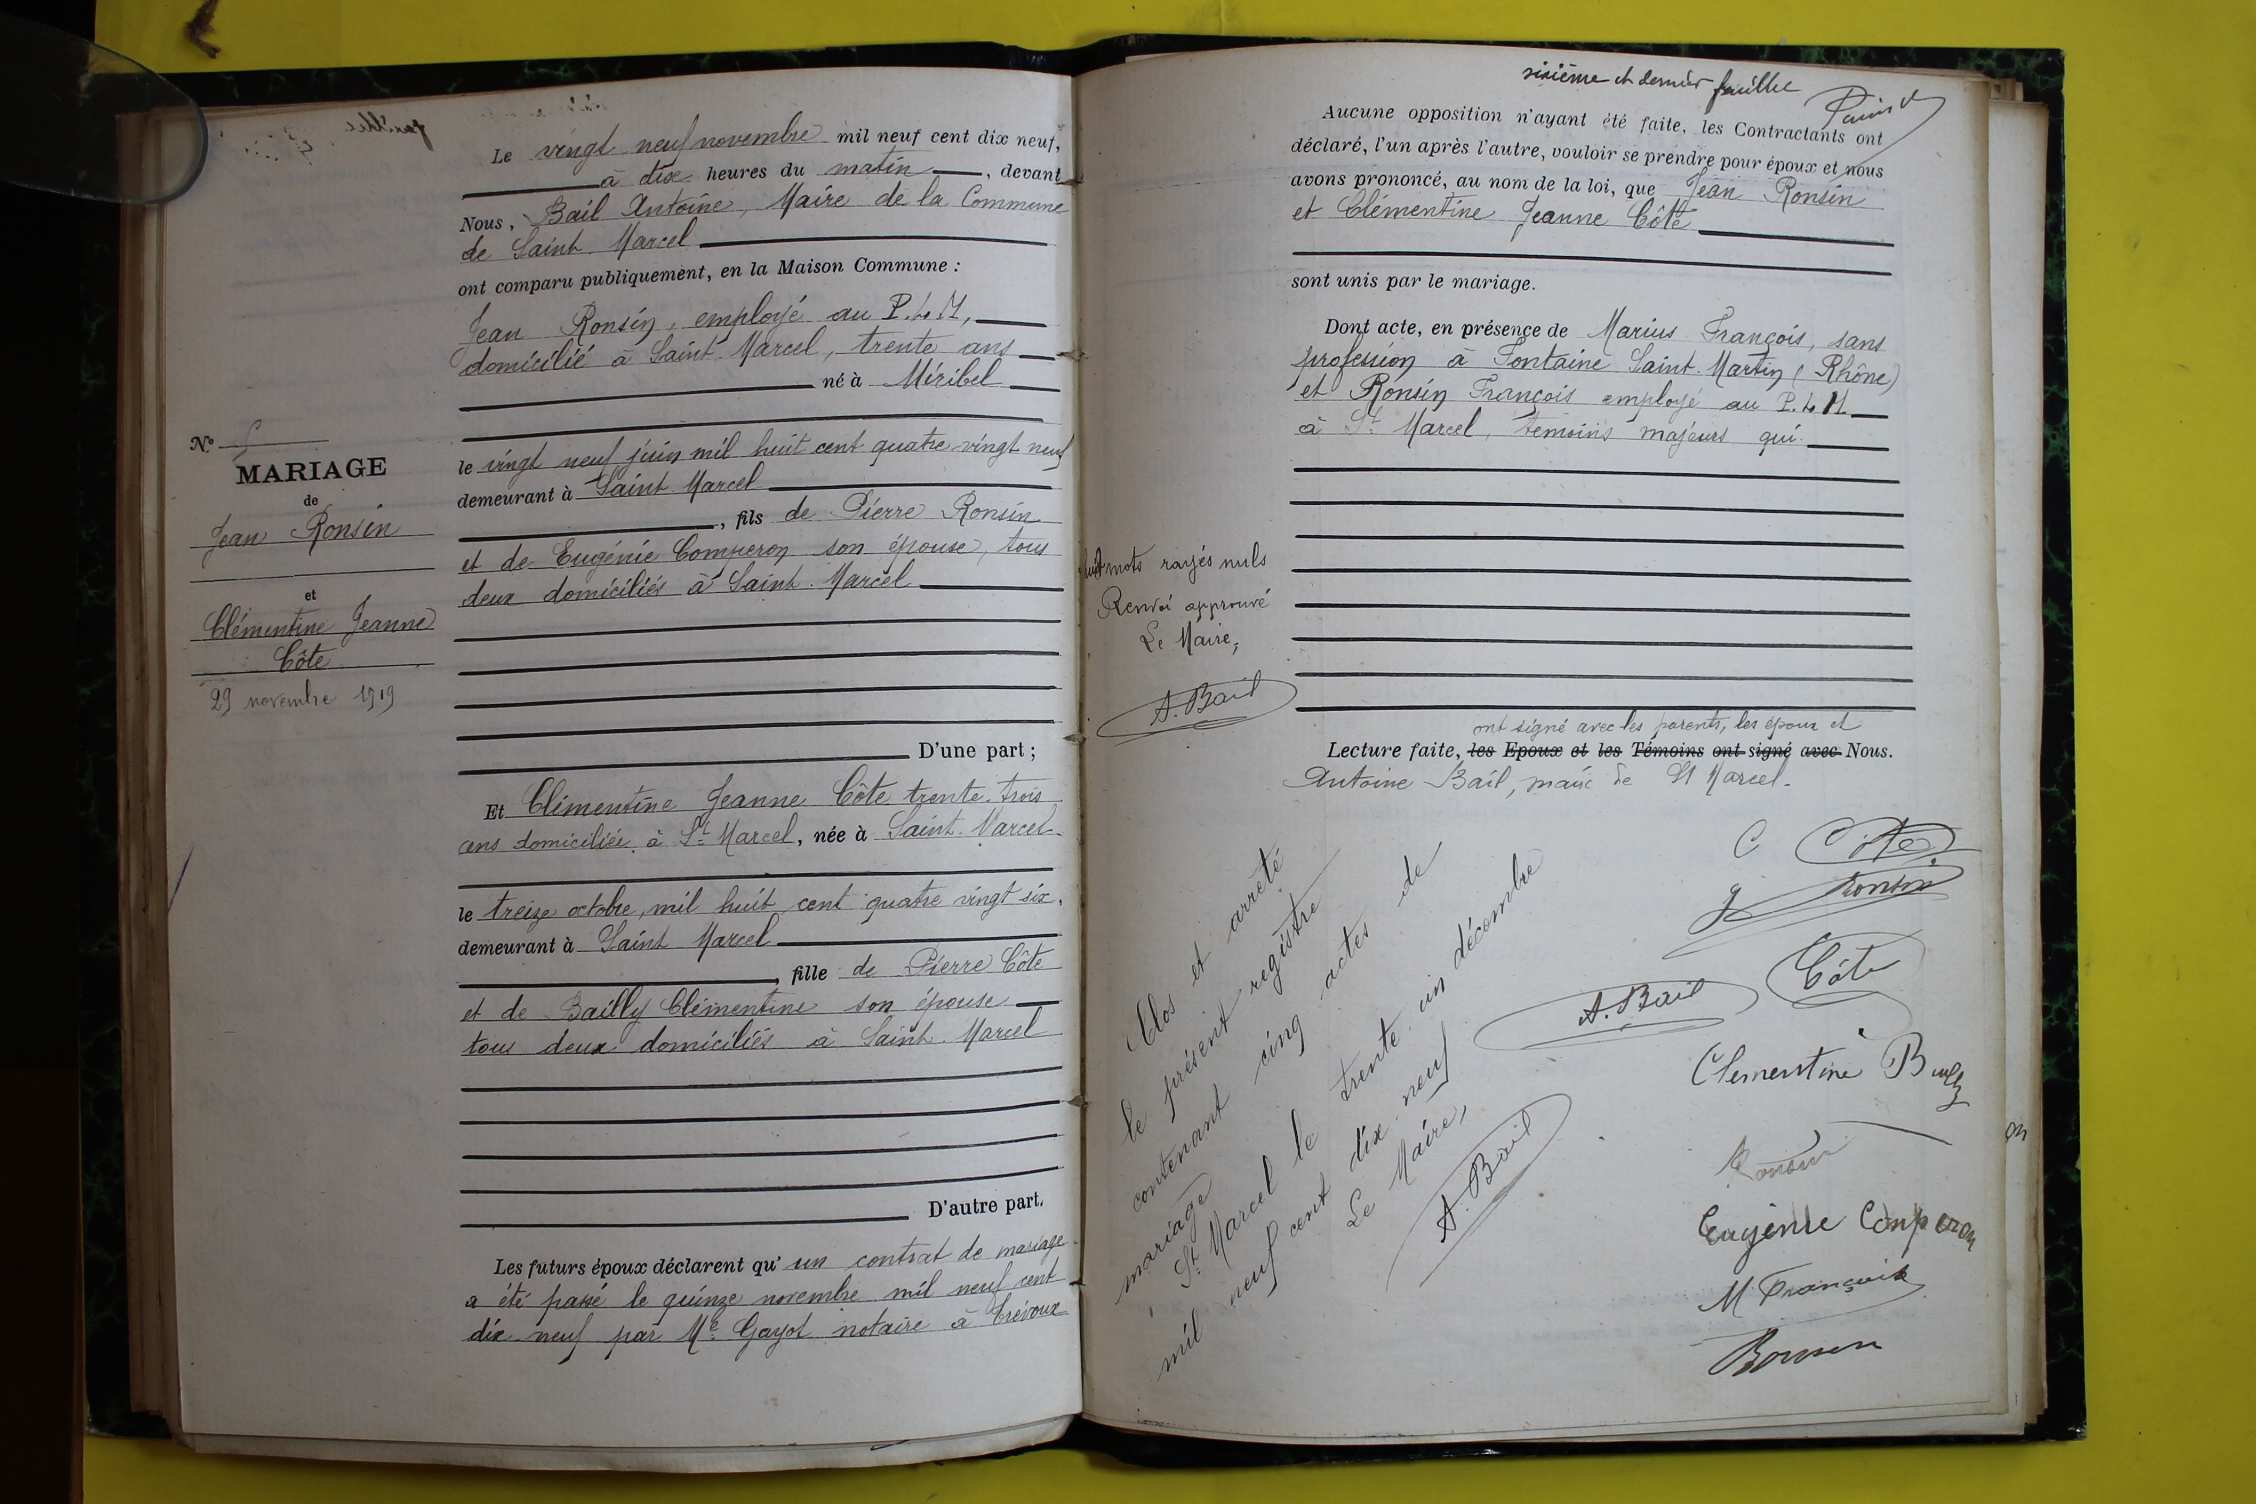 Le vingt neuf novembre mil neuf cent dix neuf,
à dix heures du matin, devant
Nous, Bail Antoine, Maire de la Commune
de Saint Marcel
ont comparu publiquement, en la Maison Commune :
Jean Ronsin, employé au P.L.M,
domicilié à Saint Marcel, trente ans
né à Miribel
le vingt neuf juin mil huit cent quatre vingt neuf
demeurant à Saint Marcel
, fils de Pierre Ronsin
et de Eugénie Comperon son épouse, tous
deux domiciliés à Saint Marcel
D'une part ;
N° 5
MARIAGE
de
Jean Ronsin
et
Clémentine Jeanne
Côte
29 novembre 1919
Et Clémentine Jeanne Côte trente-trois
ans domiciliée à St Marcel, née à Saint Marcel
le treize octobre, mil huit cent quatre vingt six,
demeurant à Saint Marcel
, fille de Pierre Côte
et de Bailly Clémentine son épouse
tous deux domiciliés à Saint Marcel
D'autre part.
Les futurs époux déclarent qu'un contrat de mariage
a été passé le quinze novembre mil neuf cent
dix neuf par Me Gayot notaire à Trévoux
sixième et dernier feuille
Aucune opposition n'ayant été faite, les Contractants ont
déclaré, l'un après l'autre, vouloir se prendre pour époux et nous
avons prononcé, au nom de la loi, que Jean Ronsin
et Clémentine Jeanne Côte
sont unis par le mariage.
Dont acte, en présence de Marius François, sans
profession à Fontaine Saint Martin (Rhône)
et Ronsin François employé au P.L.M.
à St Marcel, témoins majeurs qui
huit mots rayés nuls
Renvoi approuvé
Le Maire,
A. Bail
ont signé avec les parents, les époux et
Lecture faite, les Epoux et les Témoins ont signé avec Nous.
Antoine Bail, maire de St Marcel.
C Côte
J Ronsin
Côte
A. Bail
Clementine Bailly
Ronsin
Eugénie Comperon
M. François
Ronsin
Clos et arrêté
le présent registre
contenant cinq actes de
mariage
St Marcel le trente un décembre
mil neuf cent dix neuf
Le Maire,
A. Bail